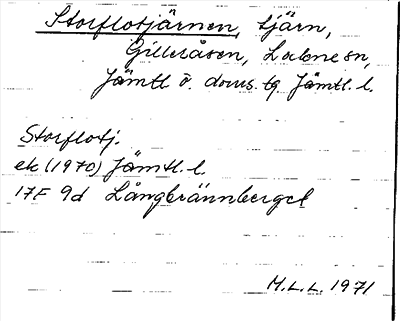 Storflotjärnen, tjärn,
Gilleråsen, Lockne sn,
Jämtl ö. doms. tg Jämtl. l.
Storflotj.
ek (1970) Jämtl. l.
17F 9d Långbrännberget
M.L.L. 1971